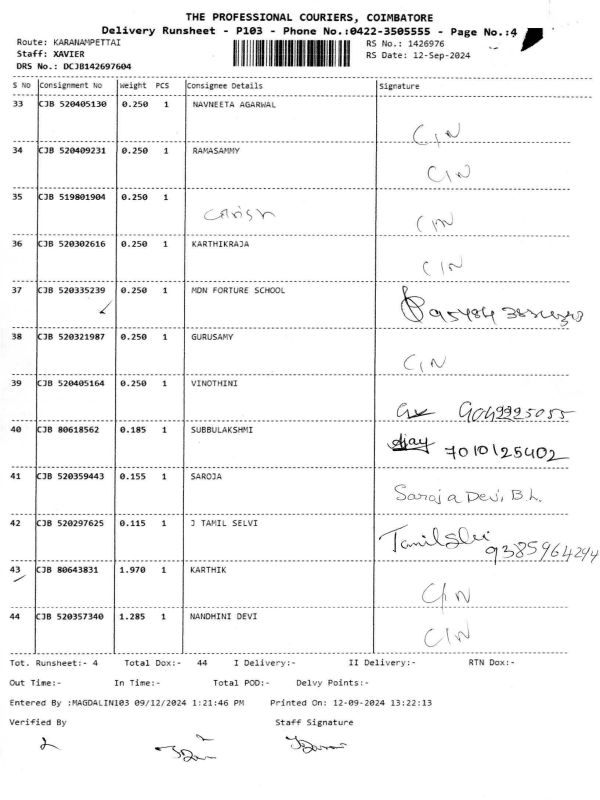 THE PROFESSIONAL COURIERS, COIMBATORE
Delivery Runsheet - P103 - Phone No.:0422-3505555 - Page No.:4
Route: KARANAMPETTAI RS No.: 1426976
Staff: XAVIER RS Date: 12-Sep-2024
DRS No.: DCJB142697604
S No Consignment No Weight PCS Consignee Details Signature
33 CJB 520405130 0.250 1 NAVNEETA AGARWAL
C/N
34 CJB 520409231 0.250 1 RAMASAMMY
C/N
35 CJB 519801904 0.250 1
C/N
36 CJB 520302616 0.250 1 KARTHIKRAJA
C/N
37 CJB 520335239 0.250 1 MDN FORTURE SCHOOL
38 CJB 520321987 0.250 1 GURUSAMY
C/N
39 CJB 520405164 0.250 1 VINOTHINI
40 CJB 80618562 0.185 1 SUBBULAKSHMI
Ajay 7010125402
41 CJB 520359443 0.155 1 SAROJA
Saroja Devi, B.L.
42 CJB 520297625 0.115 1 J TAMIL SELVI
9385964294
43 CJB 80643831 1.970 1 KARTHIK
C/N
44 CJB 520357340 1.285 1 NANDHINI DEVI
C/N
Tot. Runsheet:- 4 Total Dox:- 44 I Delivery:- II Delivery:- RTN Dox:-
Out Time:- In Time:- Total POD:- Delvy Points:-
Entered By :MAGDALIN103 09/12/2024 1:21:46 PM Printed On: 12-09-2024 13:22:13
Verified By Staff Signature